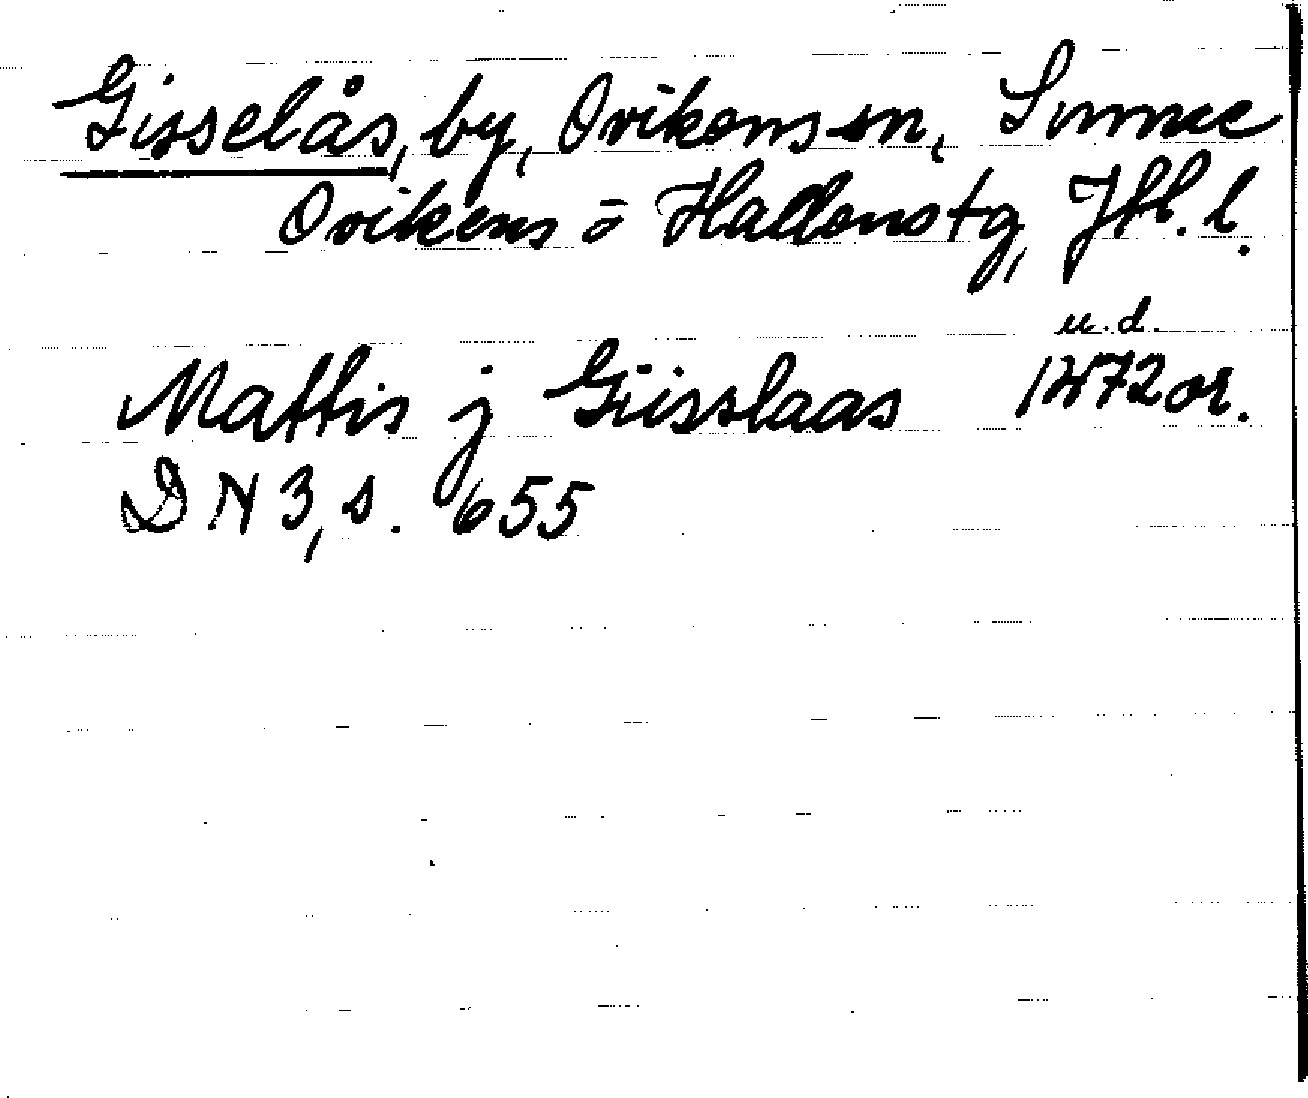 Gisselås, by, Ovikens sn, Sunne
Ovikens o Hallens tg, Jtl. l.
u.d.
Mattis j Giisslaas 1472 or.
DN 3, s. 655